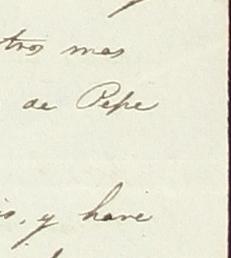 tros mas
de Pepe
is, y haré